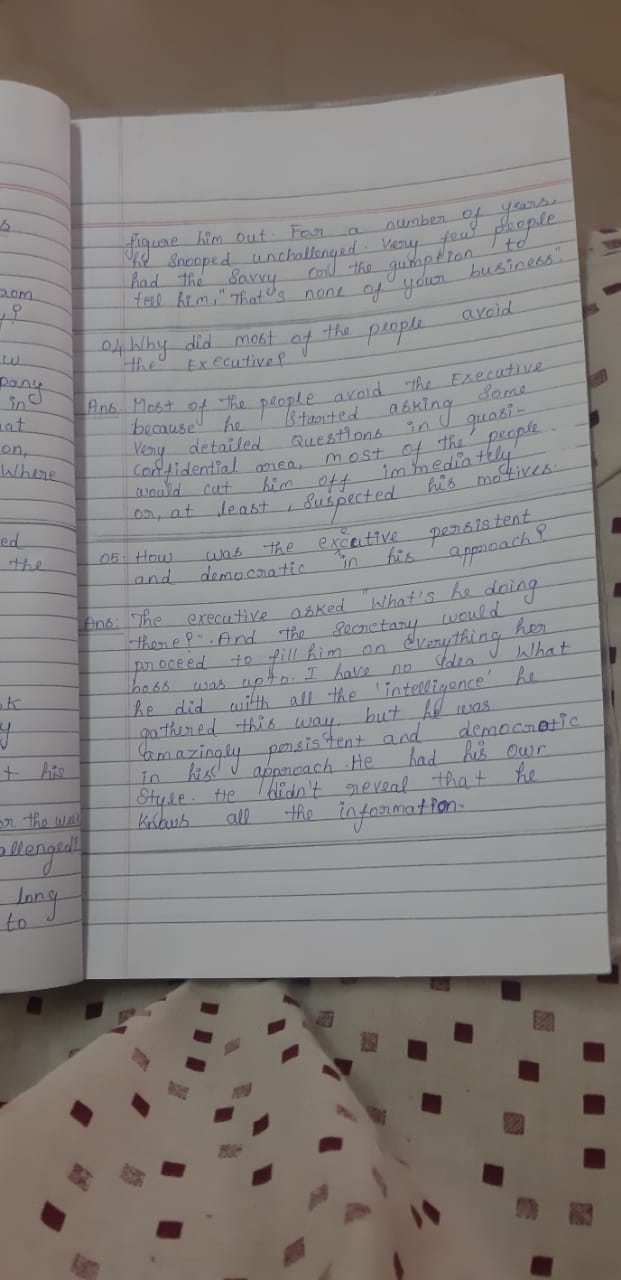 s
oom
y?
w
pany
in
at
on,
Where
ed
the
k
y
t his
or the wa
allenged?
long
to
figure him out. For a number of years,
he snooped unchallenged. Very few people
had the savvy or the gumption to
tell him, "That's none of your business".
04. Why did most of the people avoid
the Executive?
Ans: Most of the people avoid the Executive
because he started asking some
very detailed questions in quasi-
confidential area, most of the people
would cut him off immediately
or, at least, suspected his motives.
05. How was the executive persistent
and democratic in his approach?
Ans: The executive asked "What's he doing
there?". And the secretary would
proceed to fill him on everything her
boss was upto. I have no idea what
he did with all the 'intelligence' he
gathered this way, but he was
amazingly persistent and democratic
in his approach. He had his own
style. He didn't reveal that he
knows all the information.